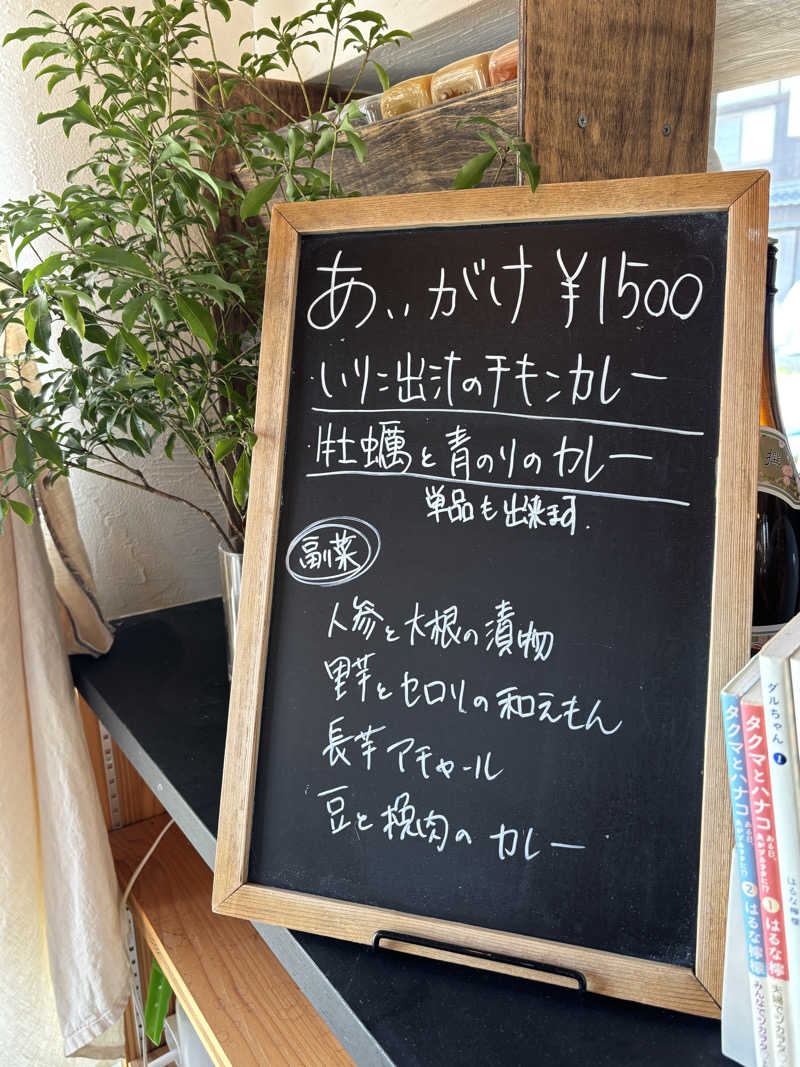 あいがけ ¥1500
いりこ出汁のチキンカレー
牡蠣と青のりのカレー
単品も出来ます.
副菜
人参と大根の漬物
里芋とセロリの和えもん
長芋アチャール
豆と挽肉のカレー
タクマとハナコ 2 はるな檸檬
タクマとハナコ 1 はるな檸檬
ダルちゃん 1 はるな檸檬